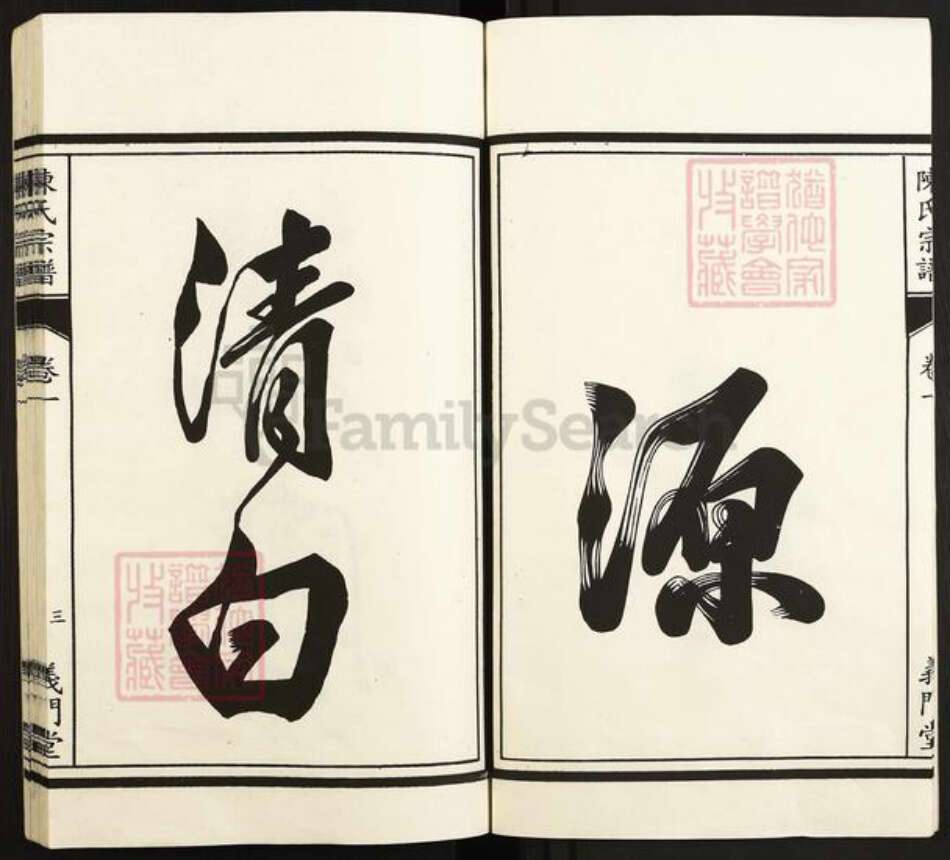 陳氏宗譜
卷一
義門堂
源
猶他家
譜學會
收藏
清白
猶他家
譜學會
收藏
陳氏宗譜
卷一
三
義門堂
FamilySearch